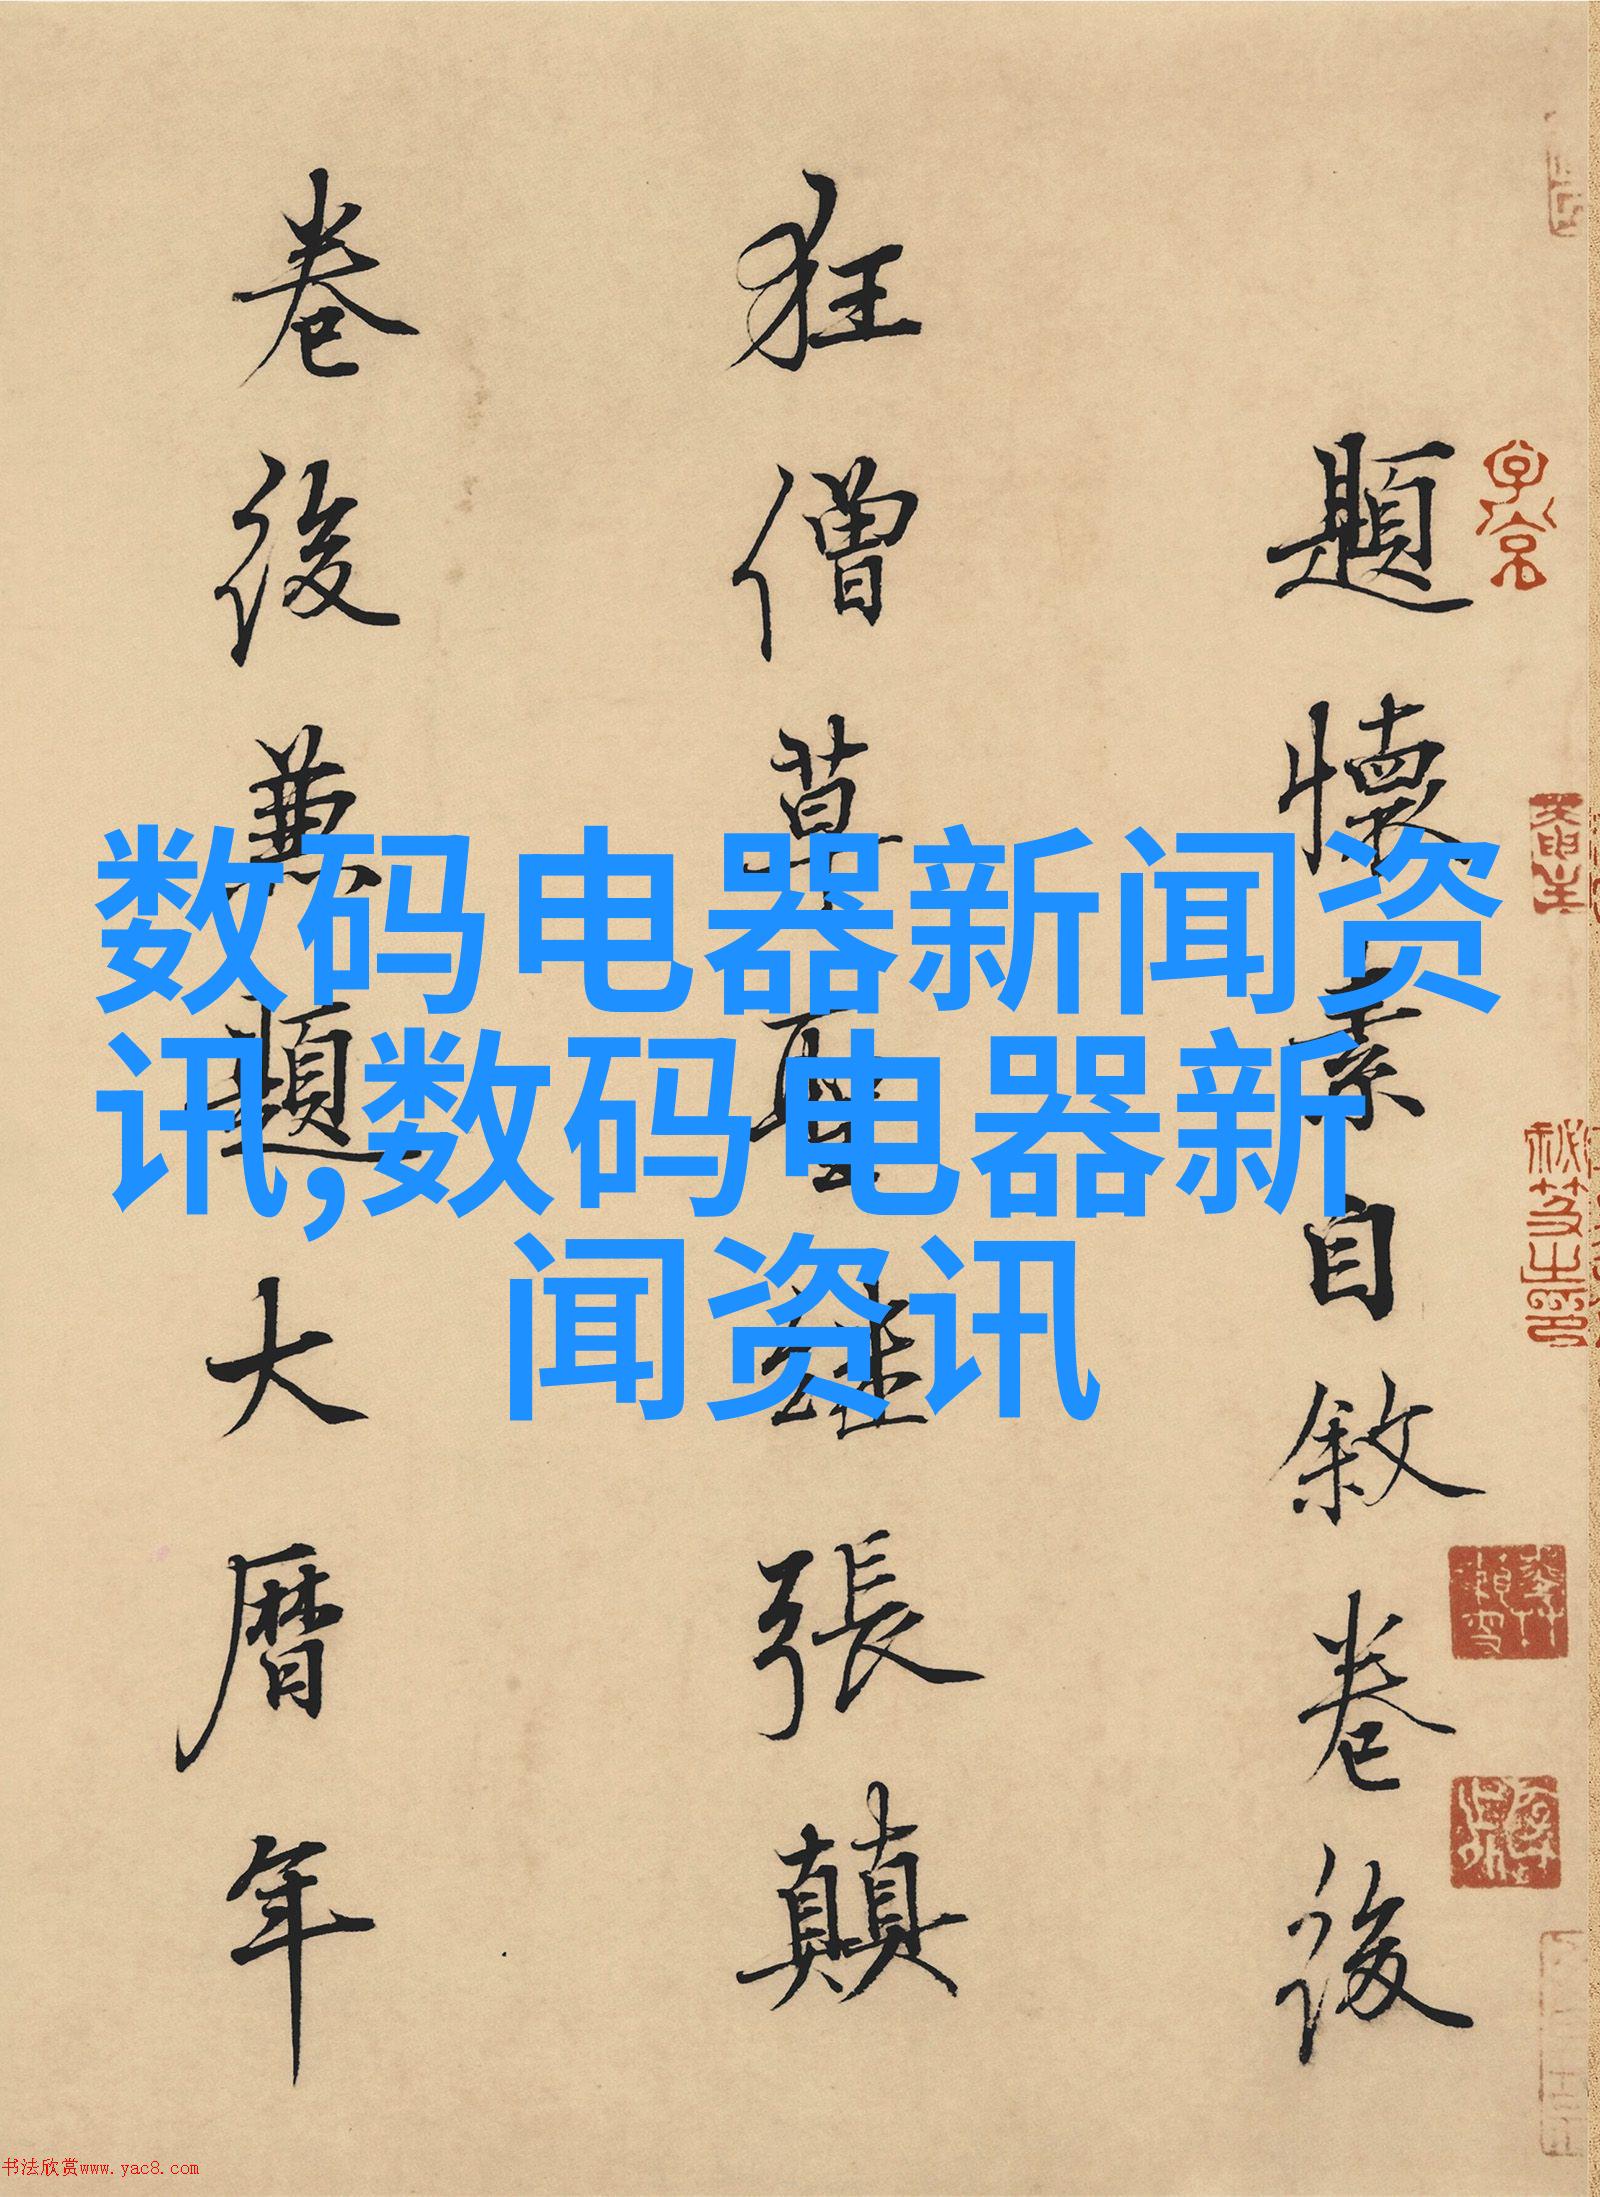 題懷素自敘卷後
狂僧草聖繼張顛
卷後兼題大曆年
数码电器新闻资
讯,数码电器新
闻资讯
书法欣赏www.yac8.com